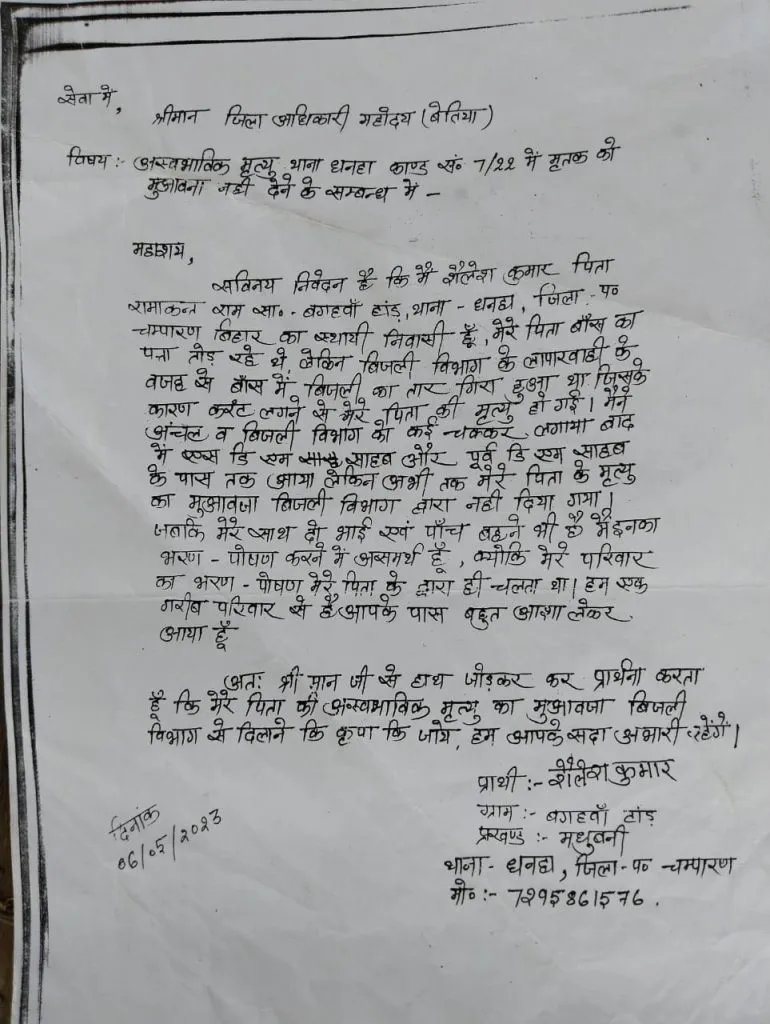 सेवा में,
श्रीमान जिला आधिकारी महोदय (बेतिया)
विषय :- अस्वभाविक मृत्यु थाना धनहा काण्ड सं॰ 7/22 में मृतक को
मुआवना नही देने के सम्बन्ध में -
महाशय,
सविनय निवेदन है कि मैं शैलेश कुमार पिता
रामाकान्त राम सा॰ - बगहवाँ टांड़, थाना - धनहा, जिला - प॰
चम्पारण बिहार का स्थायी निवासी हूँ, मेरे पिता बाँस का
पत्ता तोड़ रहे थे, लेकिन बिजली विभाग के लापारवाही के
वजह से बाँस में बिजली का तार गिरा हुआ था जिसके
कारण करंट लगने से मेरे पिता की मृत्यु हो गई। मैंने
अंचल व बिजली विभाग का कई चक्कर लगाया बाद
में एस डि एम साहब और पूर्व डि एम साहब
के पास तक आया लेकिन अभी तक मेरे पिता के मृत्यु
का मुआवजा बिजली विभाग द्वारा नही दिया गया।
जबकि मेरे साथ दो भाई एवं पाँच बहने भी है मैं इनका
भरण - पोषण करने में असमर्थ हूँ, क्योकि मेरे परिवार
का भरण - पोषण मेरे पिता के द्वारा ही चलता था। हम एक
गरीब परिवार से हैं आपके पास बहुत आशा लेकर
आया हूँ
अतः श्री मान जी से हाथ जोड़कर कर प्रार्थना करता
हूँ कि मेरे पिता की अस्वभाविक मृत्यु का मुआवजा बिजली
विभाग से दिलाने कि कृपा कि जाये, हम आपके सदा अभारी रहेंगे।
प्रार्थी :- शैलेश कुमार
ग्राम :- बगहवाँ टांड़
प्रखण्ड :- मधुबनी
थाना - धनहा, जिला - प॰ चम्पारण
मो॰ :- 7295861576.
दिनांक
06/05/2023